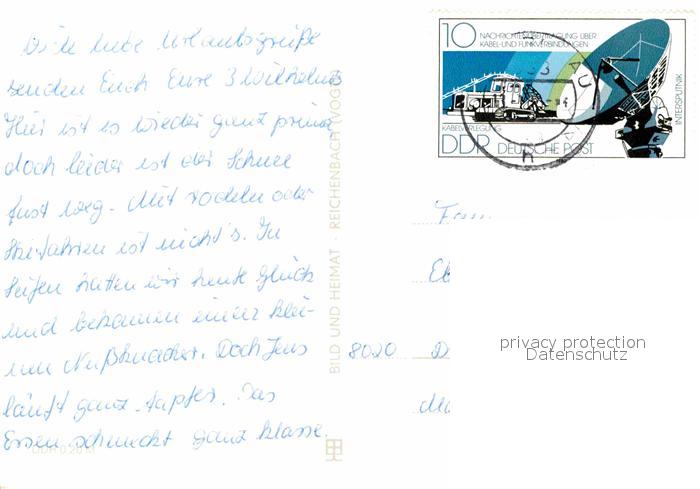 Viele liebe Urlaubsgrüße
senden Euch Eure 3 Wilhelms
Hier ist es wieder ganz prima
doch leider ist der Schnee
fast weg. Mit rodeln oder
Skifahren ist nicht's. In
Seifen hatten wir heute Glück
und bekamen einen klei-
nen Nußknacker. Doch Jens
läuft ganz tapfer. Das
Essen schmeckt ganz klasse.
DDR 0,20 M
BILD UND HEIMAT · REICHENBACH (VOGTL
10 NACHRICHTENÜBERTRAGUNG ÜBER
KABEL- UND FUNKVERBINDUNGEN
INTERSPUTNIK
KABELVERLEGUNG
DDR DEUTSCHE POST
Fam
8020 D
privacy protection
Datenschutz